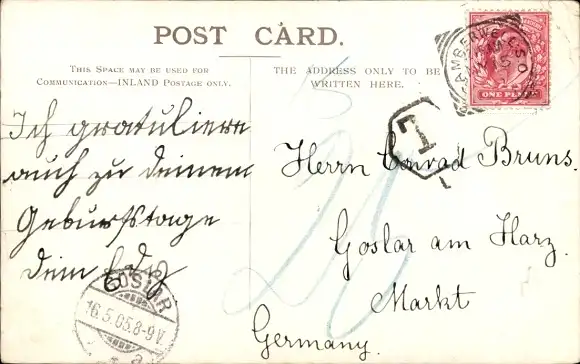 POST CARD.
THIS SPACE MAY BE USED FOR
COMMUNICATION—INLAND POSTAGE ONLY.
THE ADDRESS ONLY TO BE
WRITTEN HERE.
ONE PENNY
CAMBERWELL S.O.
T
1
Ich gratuliere
auch zu deinem
Geburtstage
dein
Herrn Conrad Bruns.
Goslar am Harz.
Markt
Germany.
20
GOSLAR
16.5.05.8-9V.